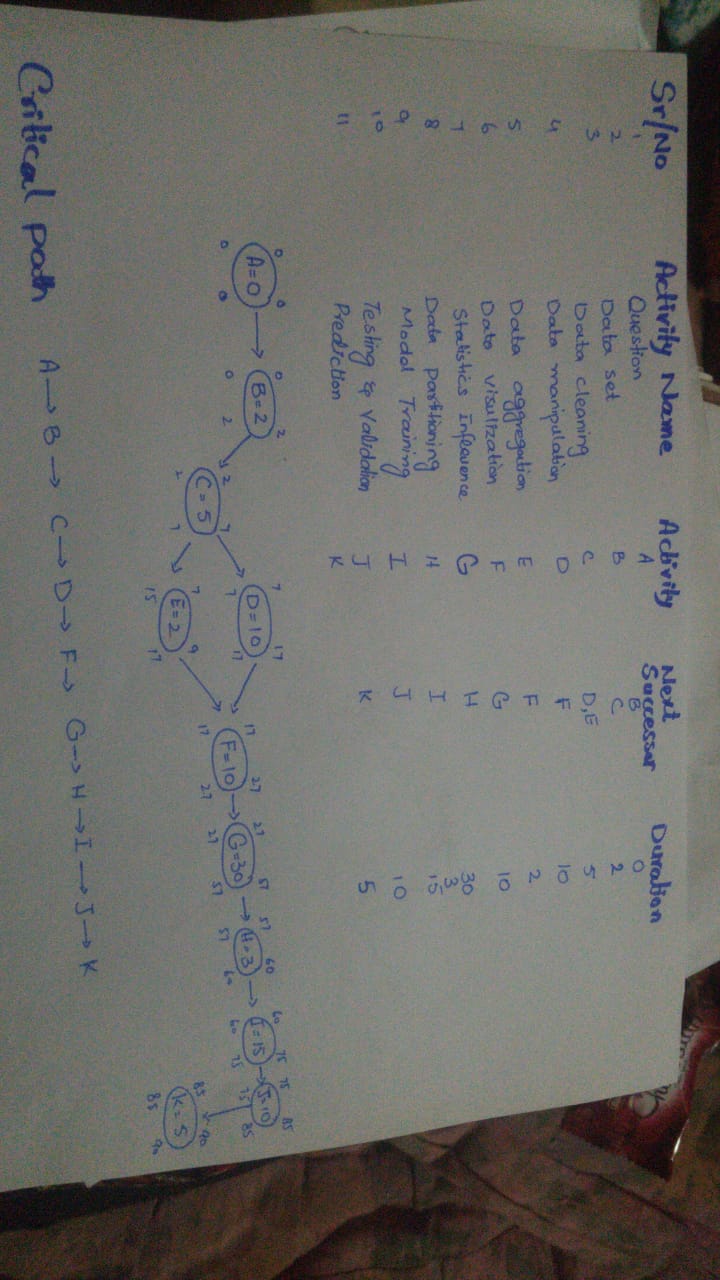 Sr/No Activity Name Activity Next Successor Duration
1 Question A B 0
2 Data set B C 2
3 Data cleaning C D,E 5
4 Data manipulation D F 10
5 Data aggregation E F 2
6 Data visulization F G 10
7 Statistics Infleuence G H 30
8 Data partitioning H I 3
9 Model Training I J 15
10 Testing & Validation J K 10
11 Prediction K 5
0 0 0 2 7 17 17 27 27 57 57 60 60 75 75 85
A=0 B=2 D=10 F=10 G=30 H=3 I=15 J=10
0 0 0 2 7 17 17 27 27 57 57 60 60 75 75 85
2 7 7 9 85 90
C=5 E=2 K=5
2 7 15 17 85 90
Critical path A→B→ C→D→F→ G→H→I→J→K